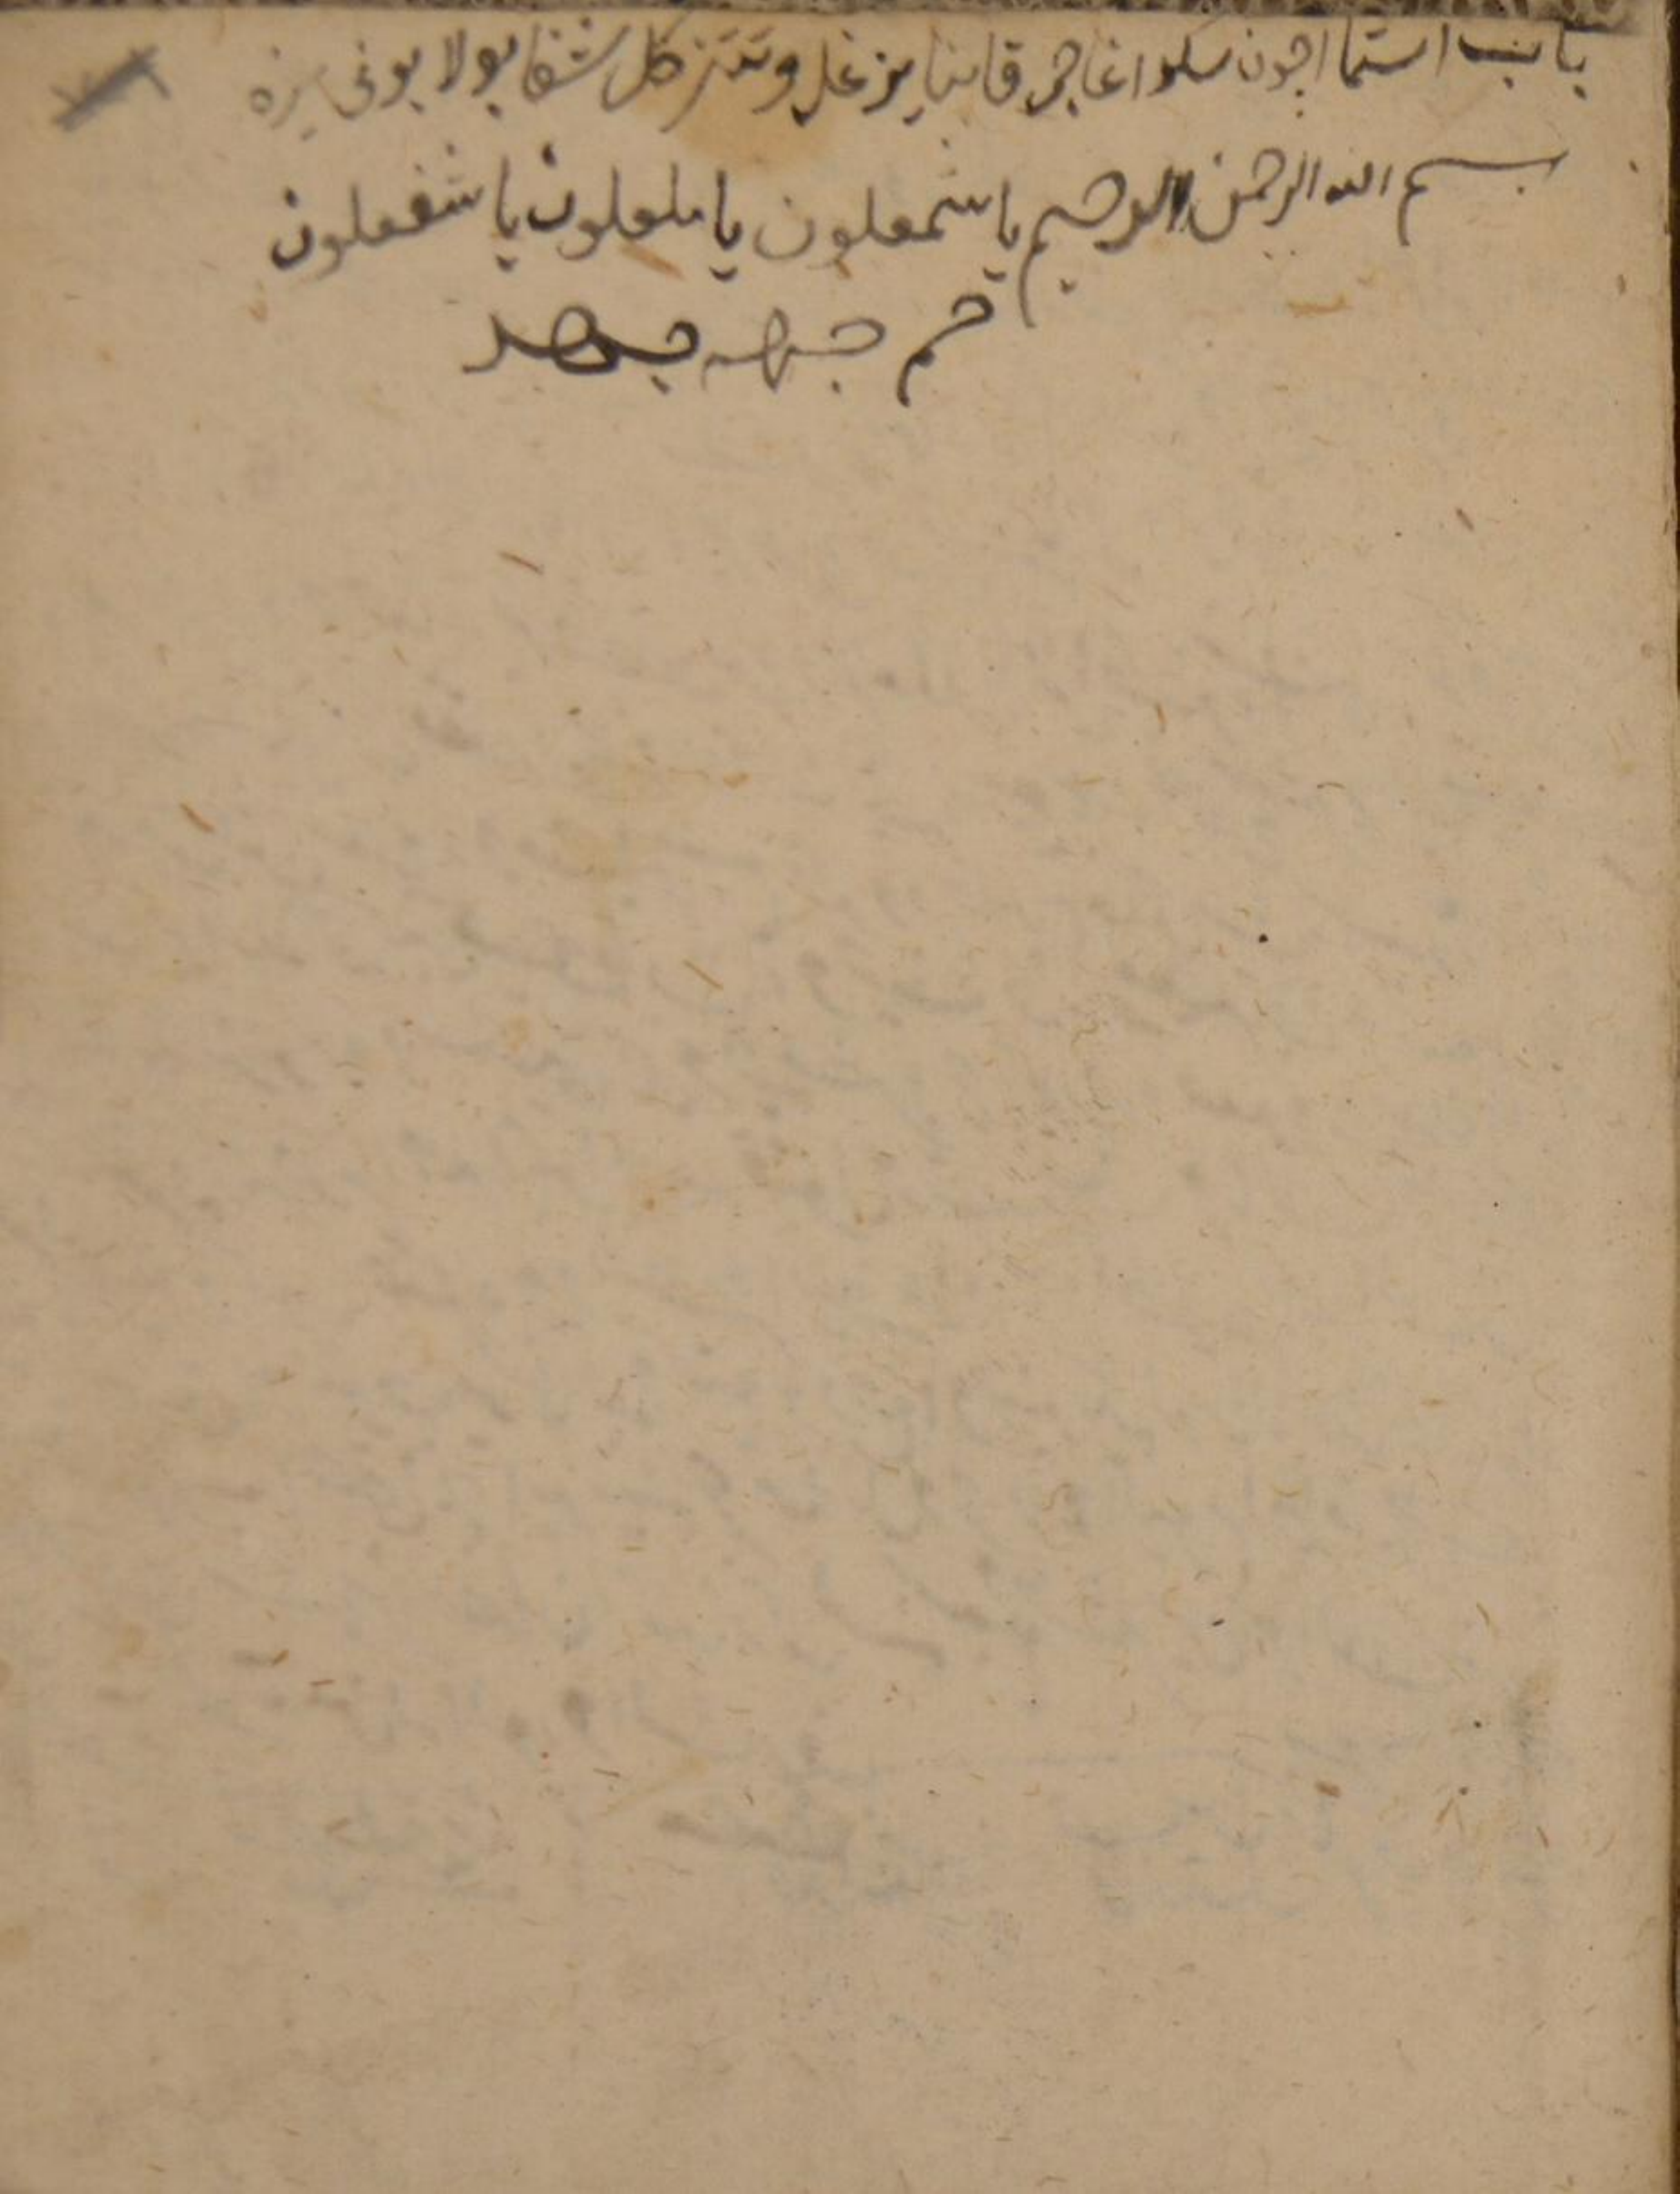 باب استما اچون سكود اغاجى قابنا يزغل و تتزكل شفا بولا بو نى يزه
بسم الله الرحمن الرحيم يا شمعلون يا ملعلون يا شفعلون
حم جهه جهد